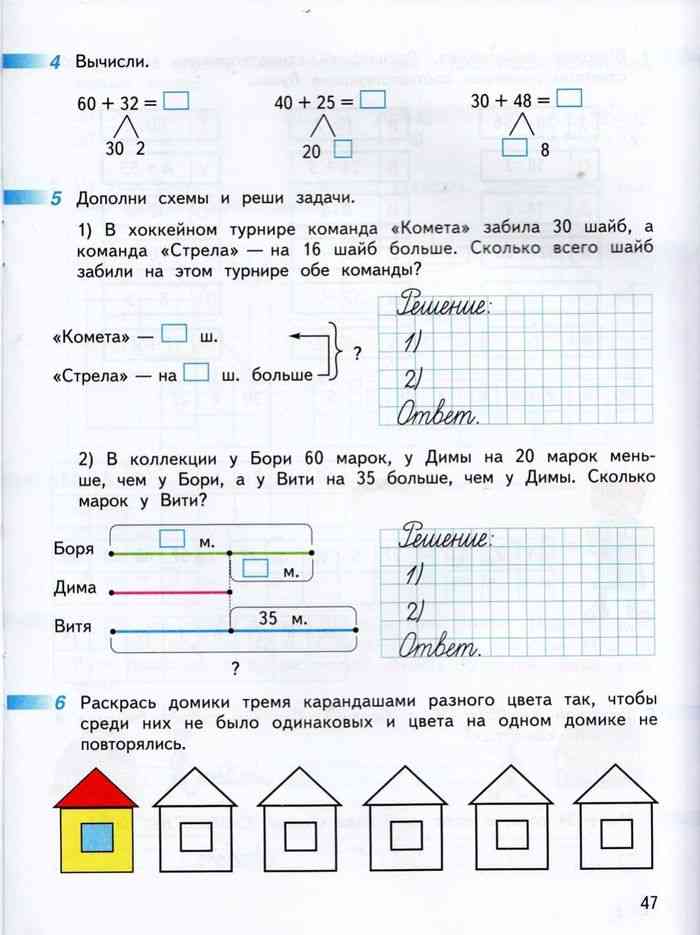 4 Вычисли.
60 + 32 = 40 + 25 = 30 + 48 =
30 2 20 8
5 Дополни схемы и реши задачи.
1) В хоккейном турнире команда «Комета» забила 30 шайб, а
команда «Стрела» — на 16 шайб больше. Сколько всего шайб
забили на этом турнире обе команды?
Решение:
«Комета» — ш.
1)
?
«Стрела» — на ш. больше
2)
Ответ.
2) В коллекции у Бори 60 марок, у Димы на 20 марок мень-
ше, чем у Бори, а у Вити на 35 больше, чем у Димы. Сколько
марок у Вити?
Решение:
Боря м.
м.
1)
Дима
2)
Витя 35 м.
Ответ.
?
6 Раскрась домики тремя карандашами разного цвета так, чтобы
среди них не было одинаковых и цвета на одном домике не
повторялись.
47